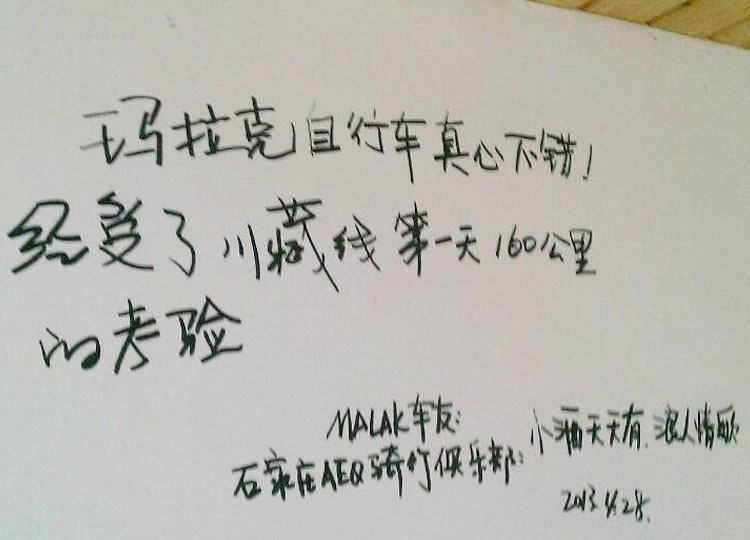 玛拉克自行车真心不错!
经受了川藏线第一天160公里
的考验
MALAK车友:
石家庄AEQ骑行俱乐部: 小酒天天有、浪人情歌
2013.4.28.